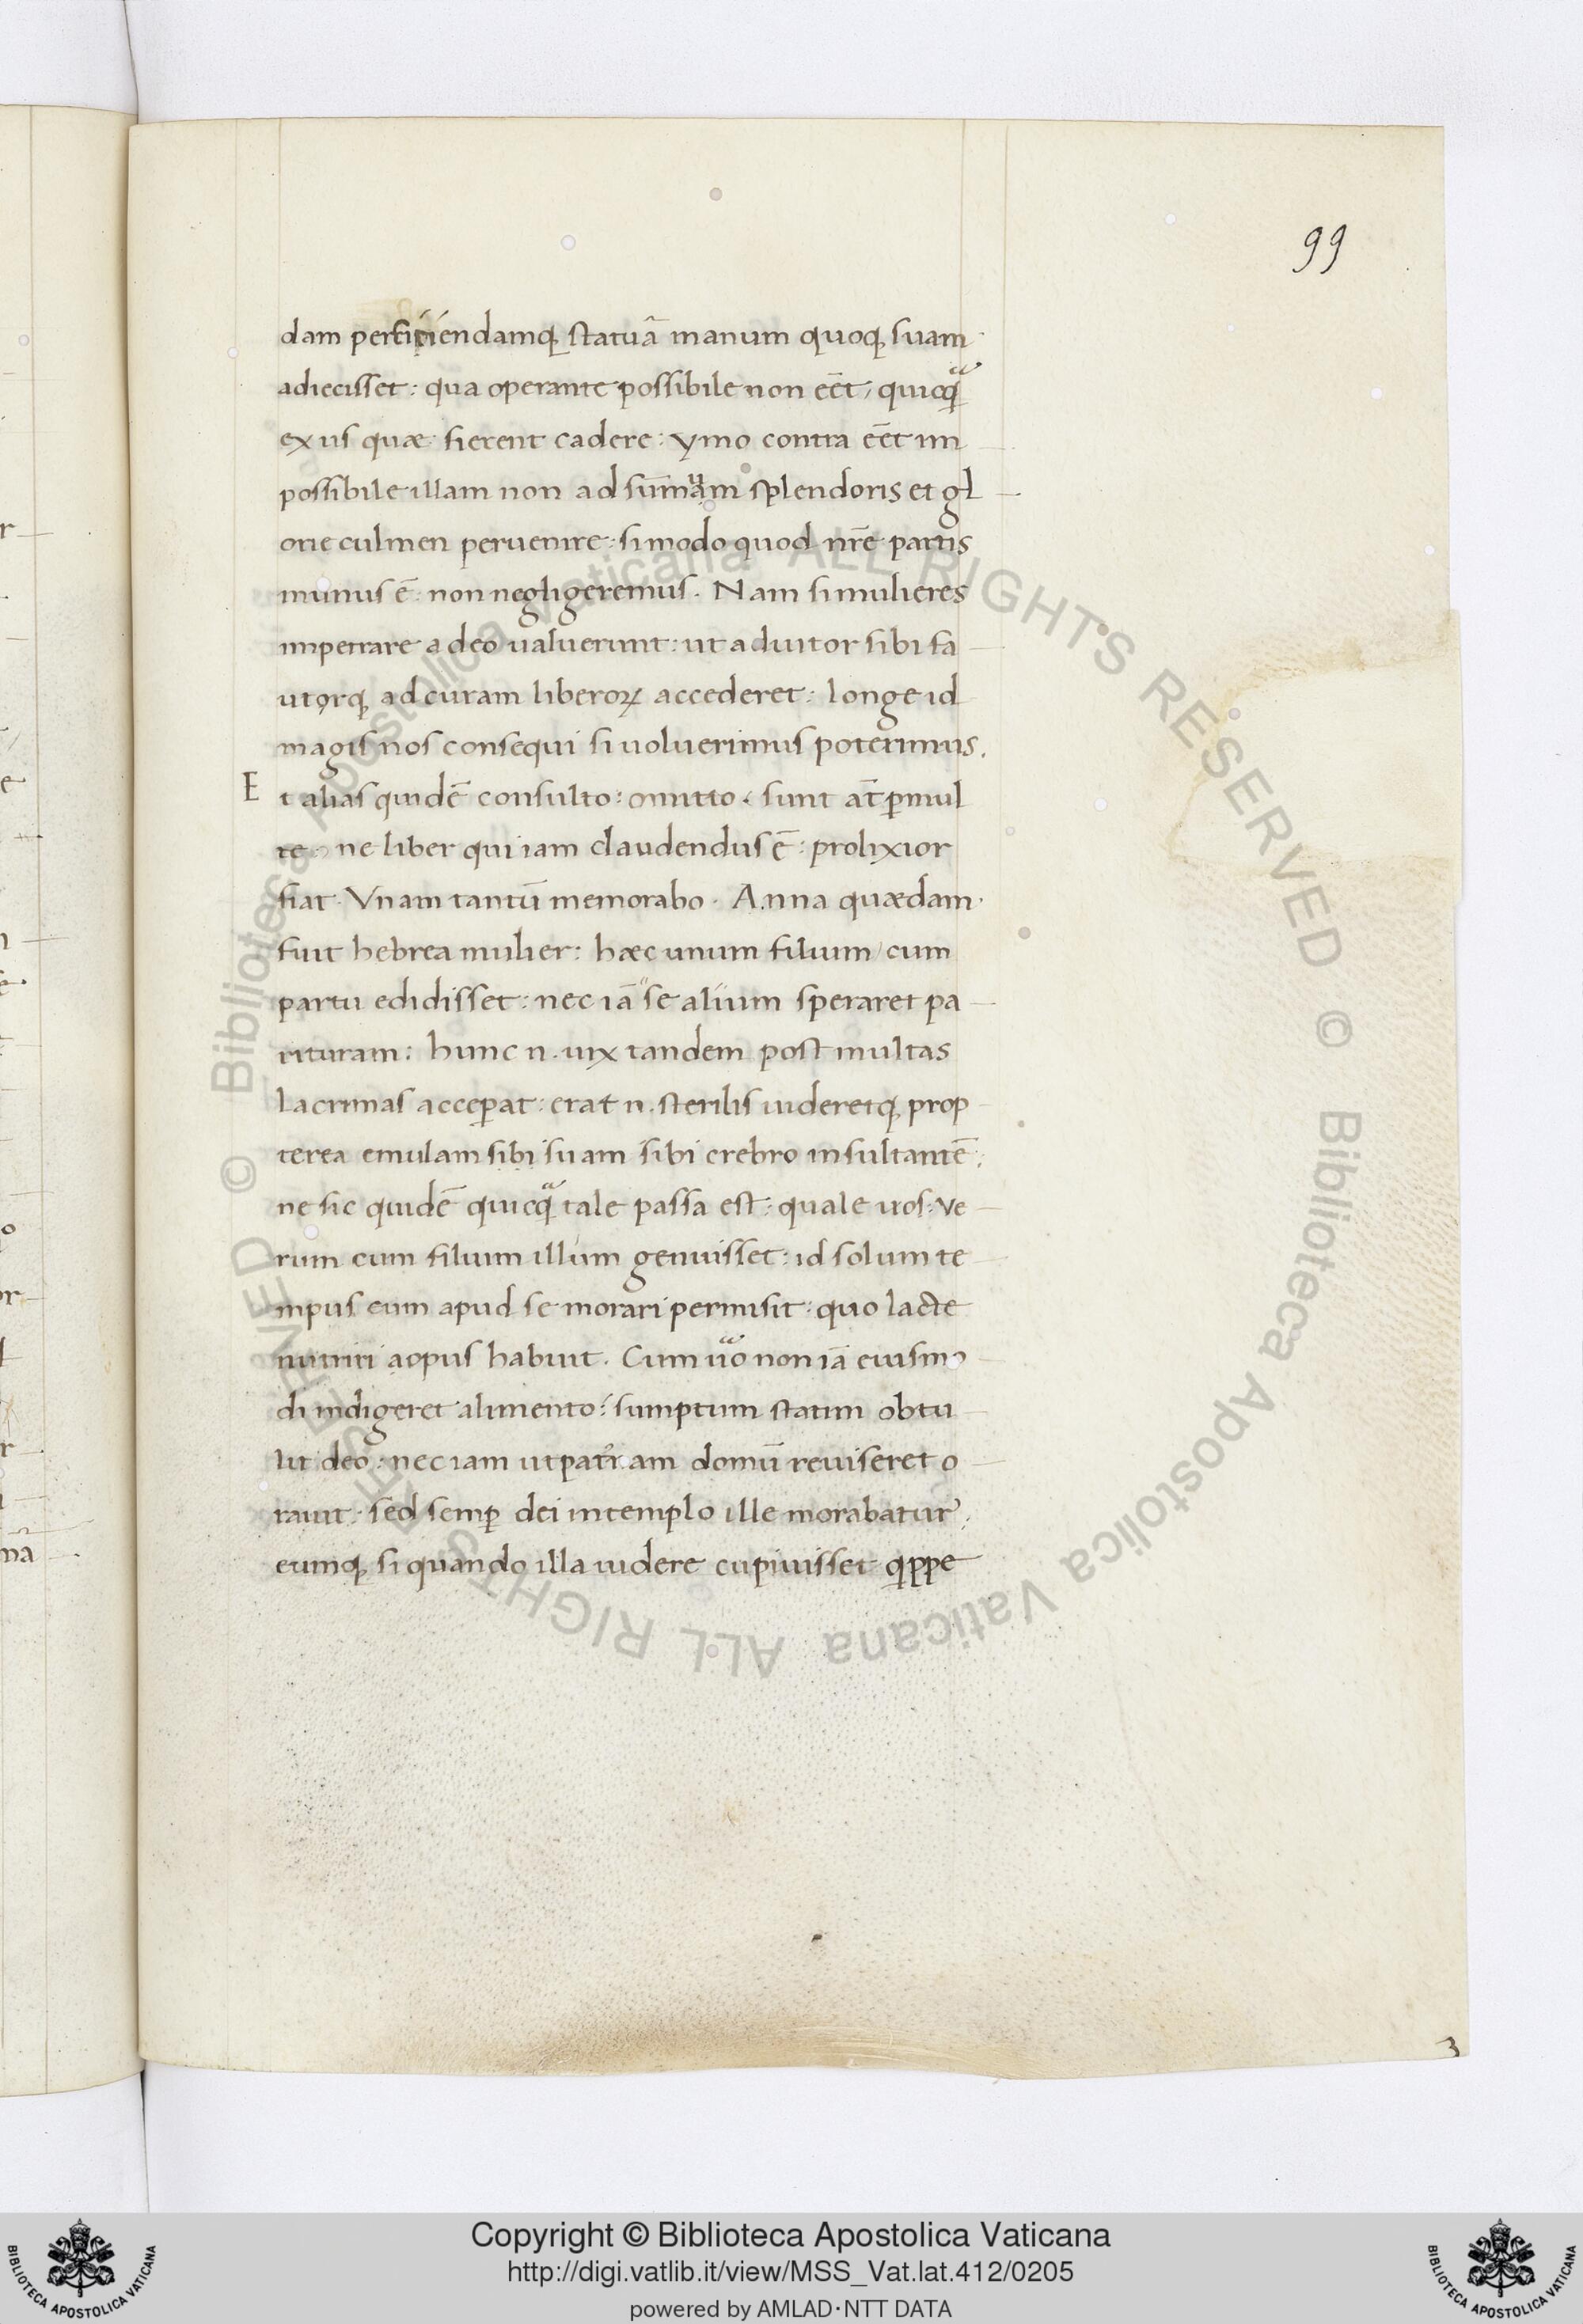 99
dam perficiendamq; statuā manum quoq; suam
adiecisset: qua operante possibile non eēt, quicq̃
ex iis quæ fierent cadere: ymo contra eēt im
possibile illam non ad sūmam splendoris et gl
orie culmen peruenire: si modo quod nr̄e partis
munus ē: non negligeremus. Nam si mulieres
impetrare a deo ualuerunt: ut adiutor sibi fa
utorq; ad curam liberoꝝ accederet: longe id
magis nos consequi si uoluerimus poterimus.
Et alias quidē consulto: omitto. sunt at̄ ꝑmul
te: ne liber qui iam claudendus ē: prolixior
fiat. Vnam tantū memorabo. Anna quædam
fuit hebrea mulier: hæc unum filium cum
partu edidisset: nec iā se alium speraret pa
rituram: hunc n. uix tandem post multas
lacrimas acceꝑat: erat n. sterilis uideretq; prop
terea emulam sibi suam sibi crebro insultantē:
ne sic quidē quicq̃ tale passa est: quale uos: Ve
rum cum filium illum genuisset: id solum te
mpus eum apud se morari permisit: quo lacte
nutriri aopus habuit. Cum ūo non iā eiusmo
di indigeret alimento: sumptum statim obtu
lit deo: nec iam ut patriam domū reuiseret o
rauit: sed semꝑ dei in templo ille morabatur:
eumq; si quando illa uidere cupiuisset qippe
3
© Biblioteca Apostolica Vaticana ALL RIGHTS RESERVED © Biblioteca Apostolica Vaticana ALL RIGHTS RESERVED
Copyright © Biblioteca Apostolica Vaticana
http://digi.vatlib.it/view/MSS_Vat.lat.412/0205
powered by AMLAD·NTT DATA
BIBLIOTECA APOSTOLICA VATICANA
BIBLIOTECA APOSTOLICA VATICANA